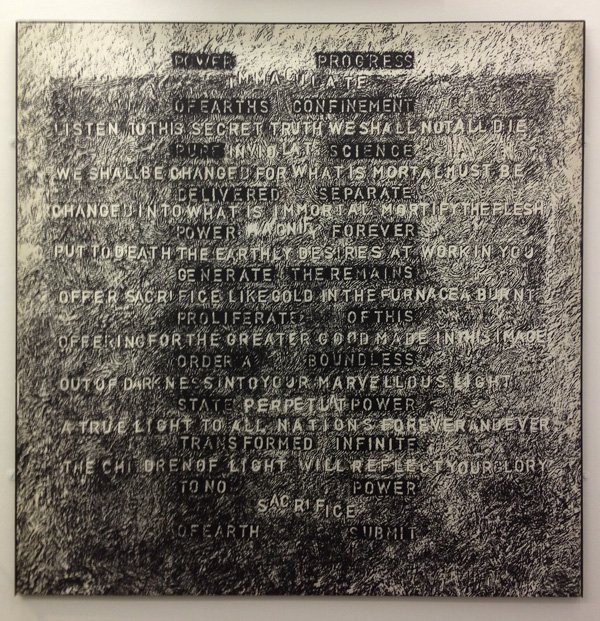 POWER PROGRESS
IMMACULATE
OF EARTHS CONFINEMENT
LISTEN TO THIS SECRET TRUTH WE SHALL NOT ALL DIE
PURE INVIOLATE SCIENCE
WE SHALL BE CHANGED FOR WHAT IS MORTAL MUST BE
DELIVERED SEPARATE
CHANGED INTO WHAT IS IMMORTAL MORTIFY THE FLESH
POWER FOREVER
PUT TO DEATH THE EARTHLY DESIRES AT WORK IN YOU
GENERATE THE REMAINS
OFFER SACRIFICE LIKE GOLD IN THE FURNACE A BURNT
PROLIFERATE OF THIS
OFFERING FOR THE GREATER GOOD MADE IN THIS IMAGE
ORDER A BOUNDLESS
OUT OF DARKNESS INTO YOUR MARVELLOUS LIGHT
STATE PERPETUAL POWER
A TRUE LIGHT TO ALL NATIONS FOREVER AND EVER
TRANSFORMED INFINITE
THE CHILDREN OF LIGHT WILL REFLECT YOUR GLORY
TO NO POWER
SACRIFICE
OF EARTH SUBMIT